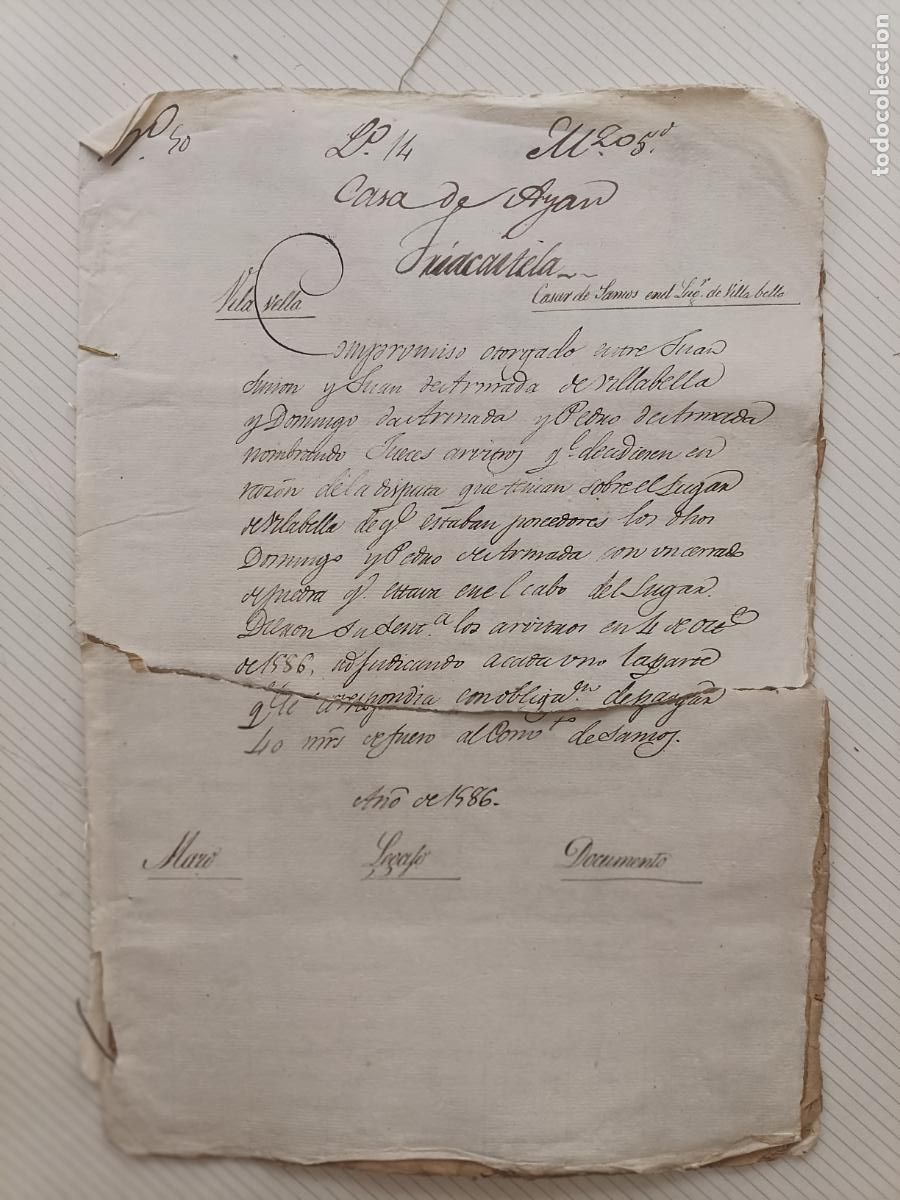 nº. 50 Lº. 14 Mzo 5º.
Casa de Ayan
Triacastela
Vila vella
Casar de Samos en el Lugr. de Villabella
Compromiso otorgado entre Juan
Simon y Juan de Armada de Villabella
y Domingo da Armada y Pedro de Armada
nombrando Jueces arvitros qe. decidiesen en
razón de la disputa que tenian sobre el Lugar
de Vilabella de qe. estaban poseedores los dhos
Domingo y Pedro de Armada con un cerrado
de piedra qe. estava en el cabo del Lugar.
Dieron su Senta. los arvitros en 4 de
de 1586, adjudicando a cada uno la parte
qe. le correspondia con obligan. de pagar
40 mrs. de fuero al Convto. de Samos.
Año de 1586.
Mazo Legajo Documento
todocoleccion